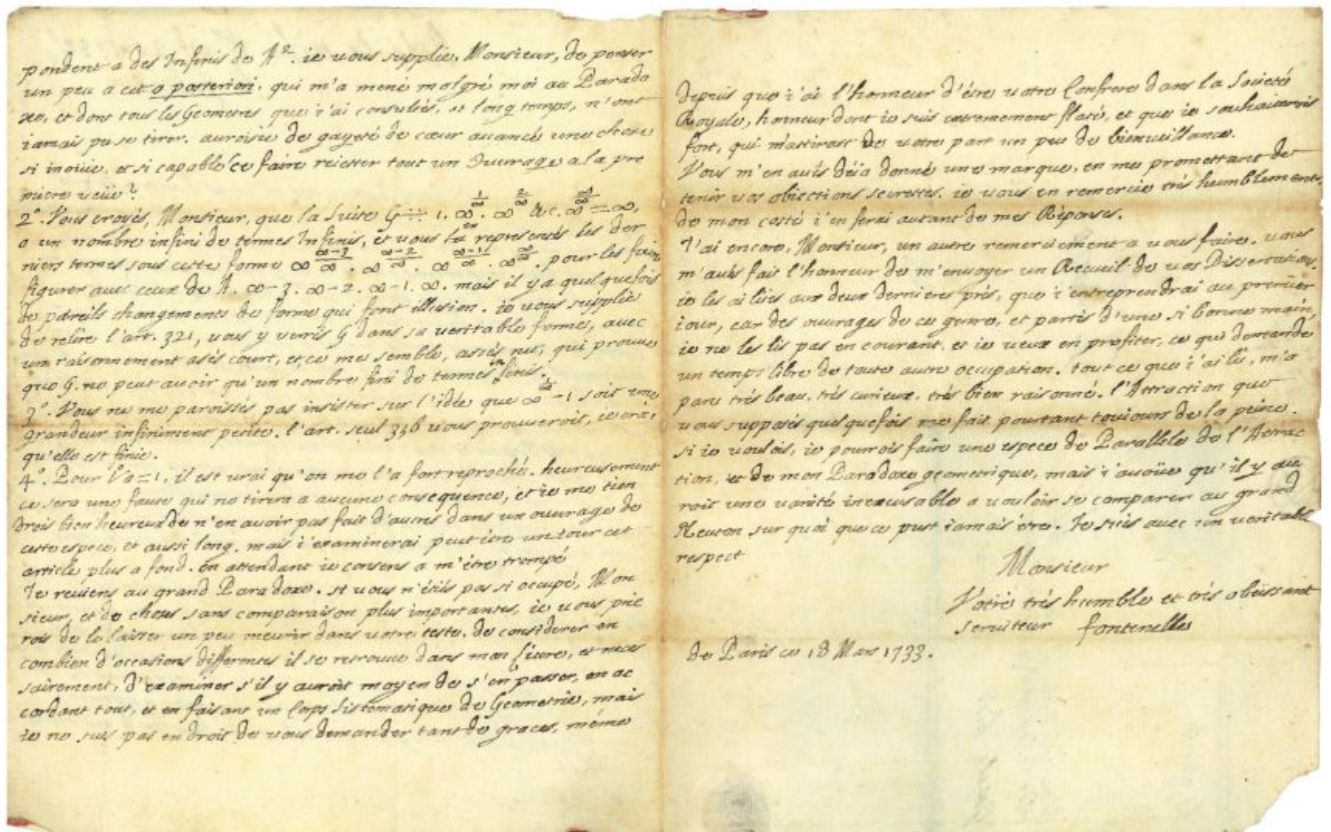 pondent a des Infinis de A². ie vous supplie, Monsieur, de penser
un peu a cet a posteriori. qui m'a mené malgré moi au Parado
xe, et dont tous les Geometres que i'ai consultés, et long temps, n'ont
iamais pu se tirer. aurois ie de gayeté de cœur avancé une chose
si inoüie, et si capable de faire reietter tout un Ouvrage a la pre
miere veüe?
2°. Vous croyés, Monsieur, que la Suite G ÷ 1. ∞^{1/∞}. ∞^{2/∞} &c. ∞^{∞/∞} = ∞,
a un nombre infini de termes Infinis, et vous en representés les der
niers termes sous cette forme ∞^{(∞-3)/∞}. ∞^{(∞-2)/∞}. ∞^{(∞-1)/∞}. ∞^{∞/∞}. pour les faire
figurer avec ceux de A. ∞-3. ∞-2. ∞-1. ∞. mais il y a quelquefois
de pareils changements de forme qui font illusion. ie vous supplie
de relire l'art. 321, vous y verrés G dans sa veritable forme, avec
un raisonnement assés court, et, ce me semble, assés net, qui prouve
que G. ne peut avoir qu'un nombre fini de termes infinis.
3°. Vous ne me paroissés pas insister sur l'idée que ∞^{1/∞} - 1 soit une
grandeur infiniment petite. l'art. seul 346 vous prouverois, ie croi,
qu'elle est finie.
4°. Pour = 1, il est vrai qu'on me l'a fort reproché. heureusement
ce sera une faute qui ne tirera a aucune consequence, et ie me tien
drois bien heureux de n'en avoir pas fait d'autres dans un ouvrage de
cette espece, et aussi long. mais i'examinerai peut etre un iour cet
article plus a fond. en attendant ie consens a m'être trompé
Je reviens au grand Paradoxe. si vous n'étiés pas si occupé, Mon
sieur, et de choses sans comparaison plus importantes, ie vous prie
rois de le laisser un peu meurir dans votre teste, de considerer en
combien d'occasions differentes il se retrouve dans mon Livre, et neces
sairement, d'examiner s'il y auroit moyen de s'en passer, en ac
cordant tout, et en faisant un Corps sistematique de Geometrie, mais
ie ne suis pas en droit de vous demander tant de graces, même
depuis que i'ai l'honneur d'être votre Confrere dans la Societé
Royale, honneur dont ie suis extremement flaté, et que ie souhaiterois
fort, qui m'attirast de votre part un peu de bienveillance.
Vous m'en avés déia donné une marque, en me promettant de
tenir vos obiections secrettes. ie vous en remercie trés humblement.
de mon costé i'en ferai autant de mes Réponses.
J'ai encore, Monsieur, un autre remerciement a vous faire. vous
m'avés fait l'honneur de m'envoyer un Recueil de vos Dissertations.
ie les ai lües aux deux dernieres prés, que i'entreprendrai au premier
iour, car des ouvrages de ce genre, et partis d'une si bonne main,
ie ne les lis pas en courant, et ie veux en profiter, ce qui demande
un temps libre de toute autre occupation. tout ce que i'ai lû, m'a
paru trés beau, trés curieux, trés bien raisonné. l'Attraction que
vous supposés quelquefois me fait pourtant touiours de la peine.
si ie voulois, ie pourrois faire une espece de Parallele de l'Attrac
tion, et de mon Paradoxe geometrique, mais i'avoüe qu'il y au
roit une vanité inexcusable a vouloir se comparer au grand
Neuton sur quoi que ce pust iamais etre. Je suis avec un veritable
respect
Monsieur
Votre trés humble et trés obëissant
serviteur fontenelle
de Paris ce 18 Mars 1733.